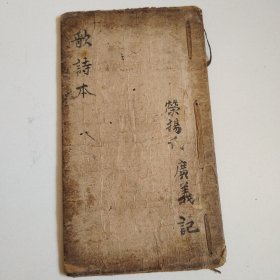 榮揚氏廣義記
歌詩本